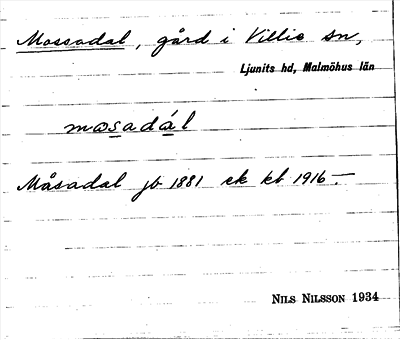 Mossadal, gård i Villie sn,
Ljunits hd, Malmöhus län
mosadál
Måsadal jb 1881 ek kt 1916 –
NILS NILSSON 1934